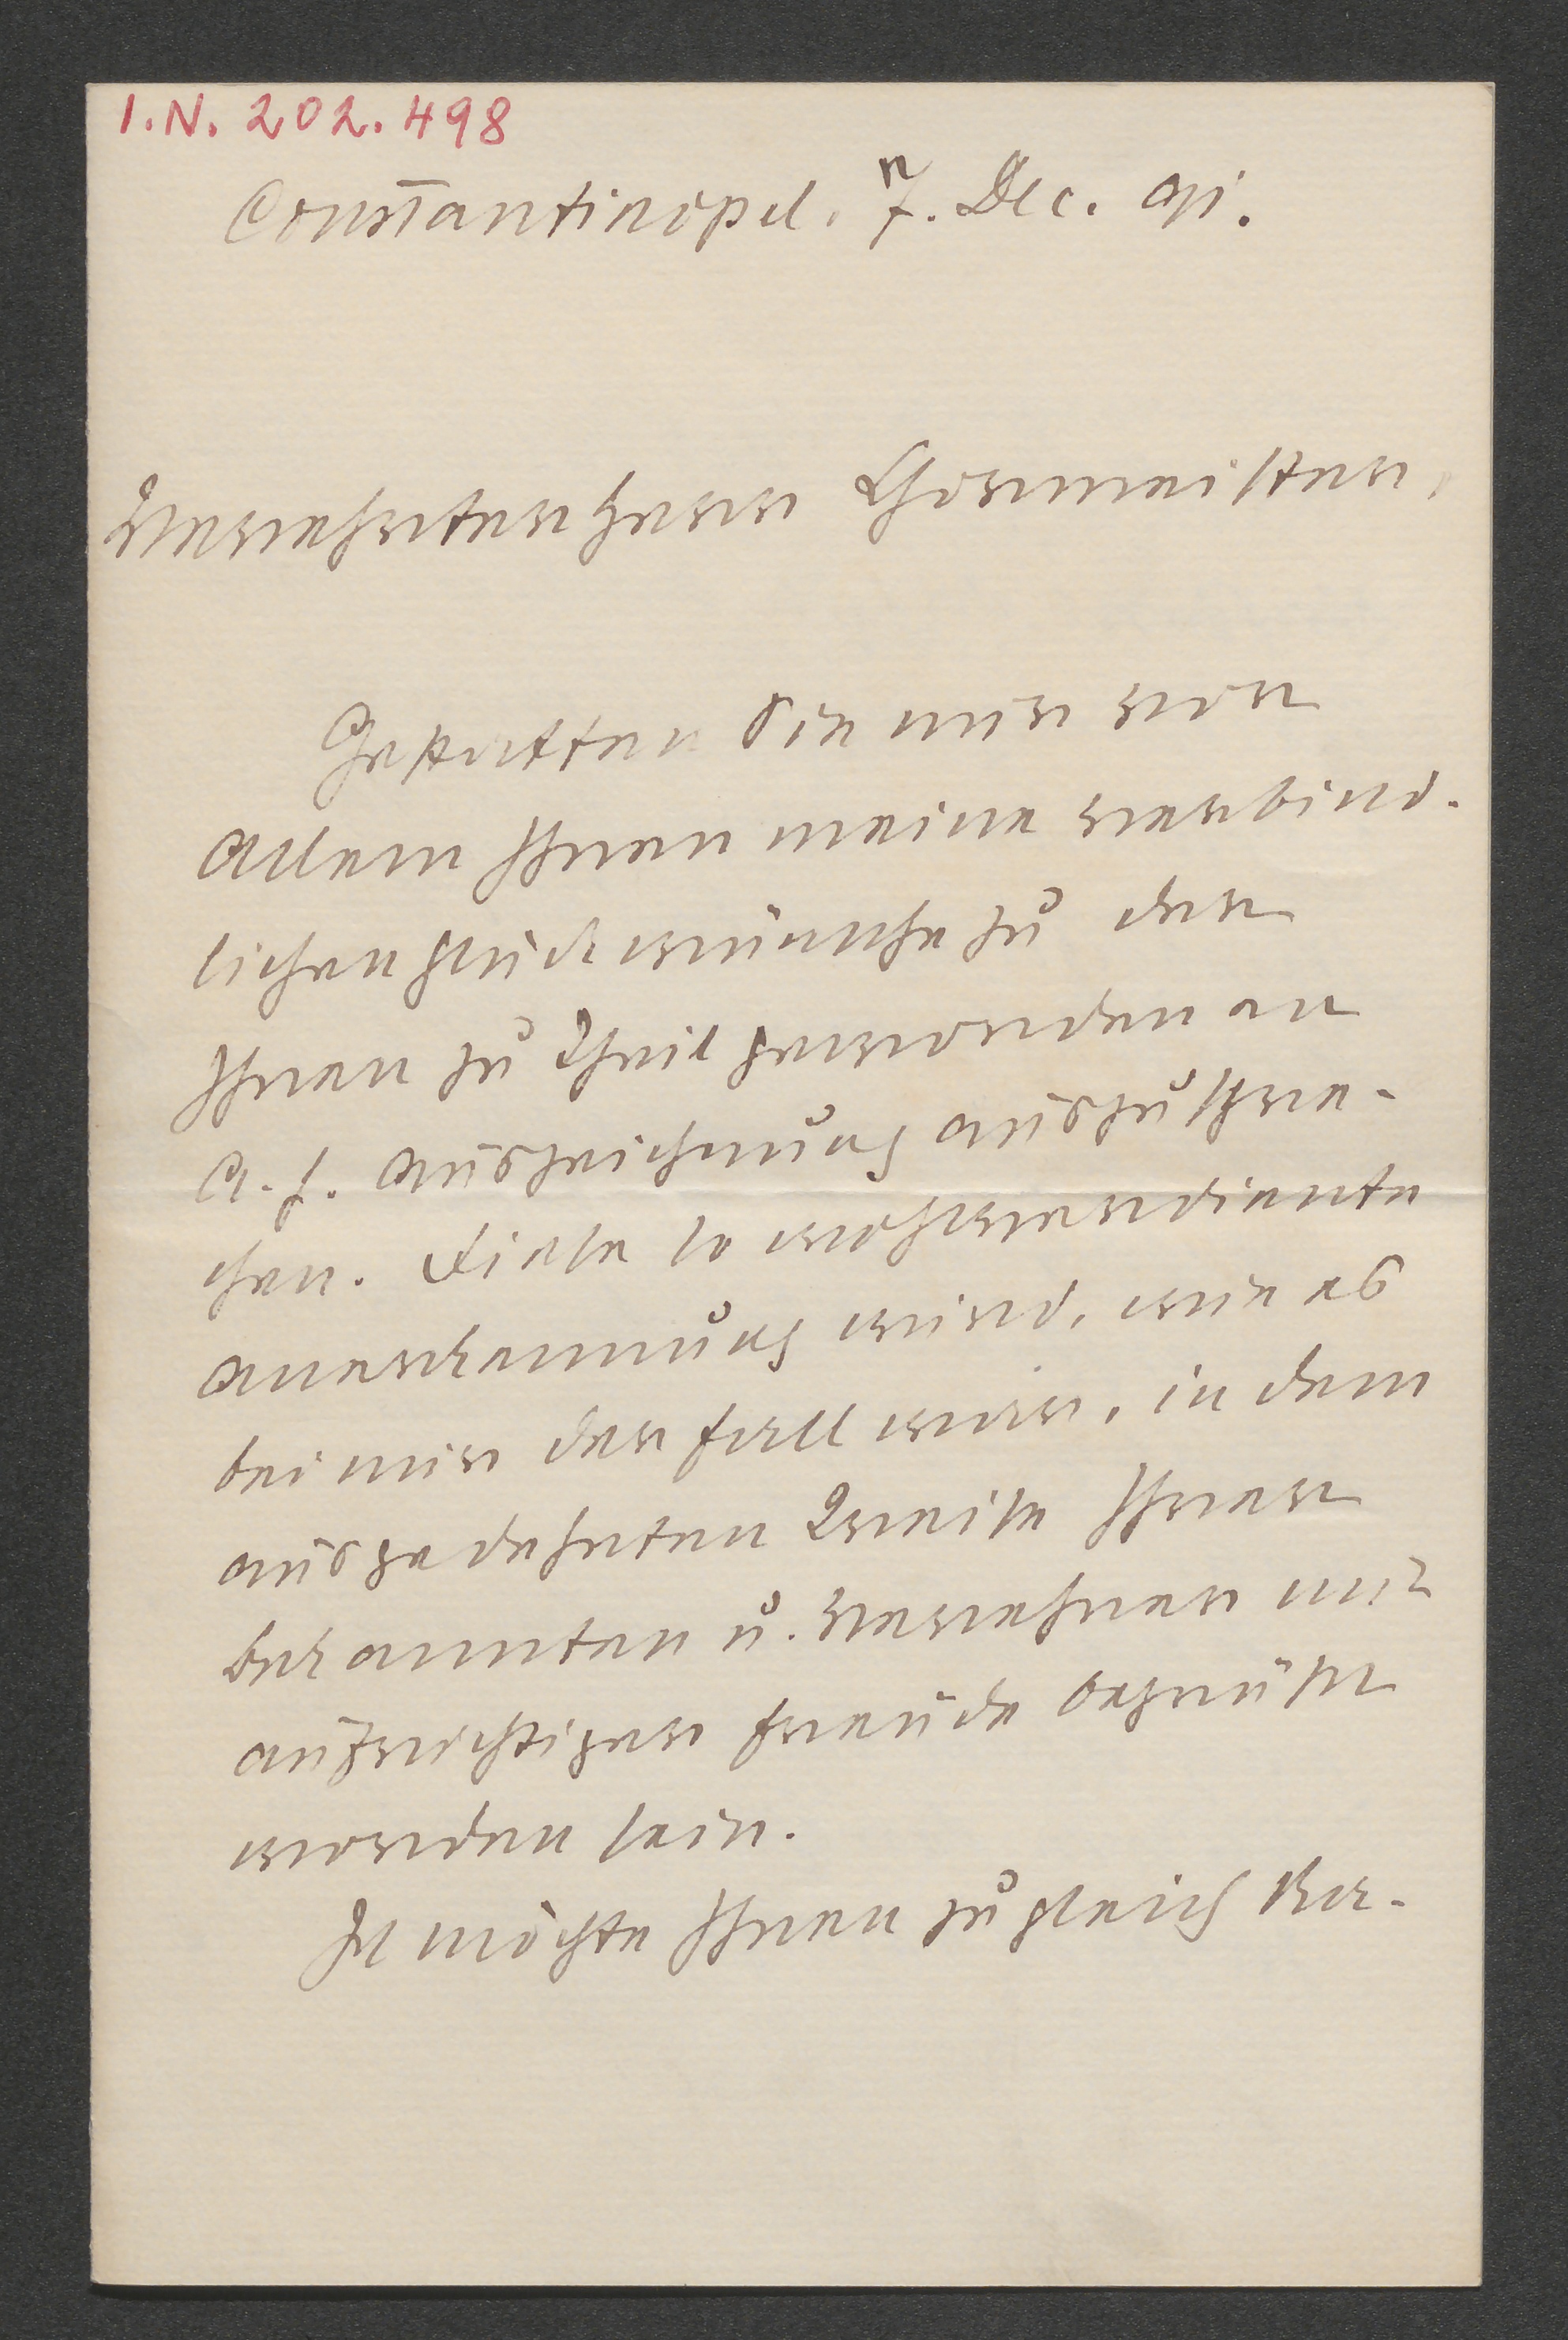 I.N. 202.498
Constantinopel, 7. Dec. 91.
Verehrter Herr Chormeister,
Gestatten Sie mir vor
Allem Ihnen meine verbind-
lichen Glückwünsche zu der
Ihnen zu Theil gewordenen
A. h. Auszeichnung auszuspre-
chen. Diese so wohlverdiente
Anerkennung wird, wie es
bei mir der Fall war, in dem
ausgedehnten Kreise Ihrer
Bekannten u. Verehrer mit
aufrichtiger Freude begrüßt
worden sein.
Ich möchte Ihnen zugleich